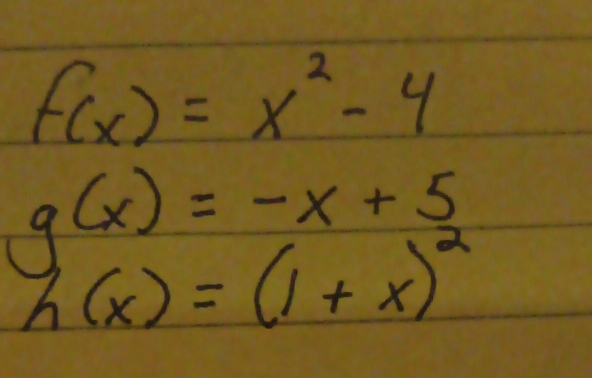 f(x) = x² - 4
g(x) = -x + 5
h(x) = (1 + x)²